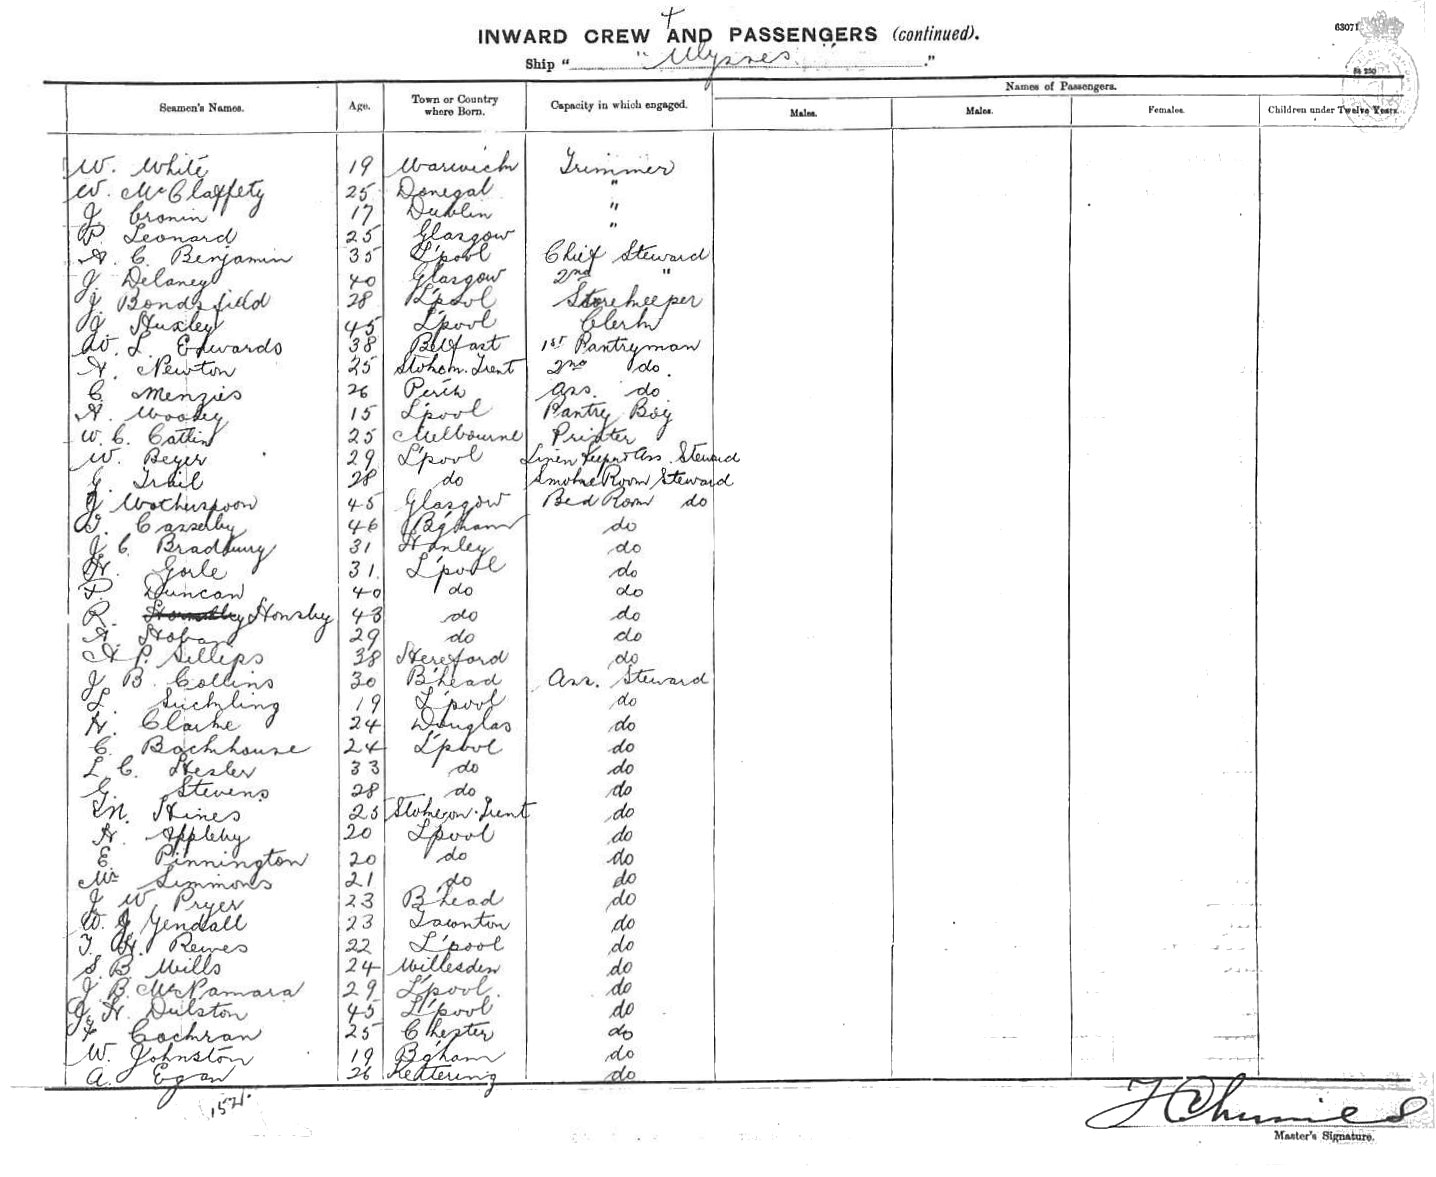 INWARD CREW AND PASSENGERS (continued).
63071
Ship “ "Ulysses" ”
Names of Passengers.
Seamen's Names. Age. Town or Country where Born. Capacity in which engaged. Males. Males. Females. Children under Twelve Years.
W. White 19 Warwick Trimmer
W. McClaffety 25 Donegal "
J. Cronin 17 Dublin "
P. Leonard 25 Glasgow "
A. C. Benjamin 35 L'pool Chief Steward
J. Delaney 40 Glasgow 2nd "
J. Bondsfield 28 L'pool Storekeeper
J. Huxley 45 L'pool Clerk
W. L. Edwards 38 Belfast 1st Pantryman
A. Newton 25 Stoke on Trent 2nd do.
C. Menzies 26 Perth Ass. do
A. Woosey 15 L'pool Pantry Boy
W. C. Catlin 25 Melbourne Printer
W. Beyer 29 L'pool Linen Keeper & Ass. Steward
G. Trail 28 do Smoke Room Steward
J Wotherspoon 45 Glasgow Bed Room do
T. Casserby 46 B'gham do
J. C. Bradbury 31 Hanley do
H. Gorle 31. L'pool do
P. Duncan 40 do do
R. Honsby 43 do do
A. Hoban 29 do do
A P. Sillips 38 Hereford do
J B. Collins 30 B'head Ass. Steward
L. Suckling 19 L'pool do
H. Clarke 24 Douglas do
C. Backhouse 24 L'pool do
L C. Hesler 33 do do
G. Stevens 28 do do
T M. Hines 25 Stoke on Trent do
A. Appleby 20 L'pool do
E. Pinnington 20 do do
Simmons 21 do do
J W Pryer 23 B'head do
W. J Yendall 23 Taunton do
T. H. Reeves 22 L'pool do
S. B. Mills 24 Willesden do
J B. McNamara 29 L'pool. do
J. H. Dulston 45 L'pool do
F Cochran 25 Chester do
W. Johnston 19 B'gham do
A. Egan 26 Kettering do
Master's Signature.